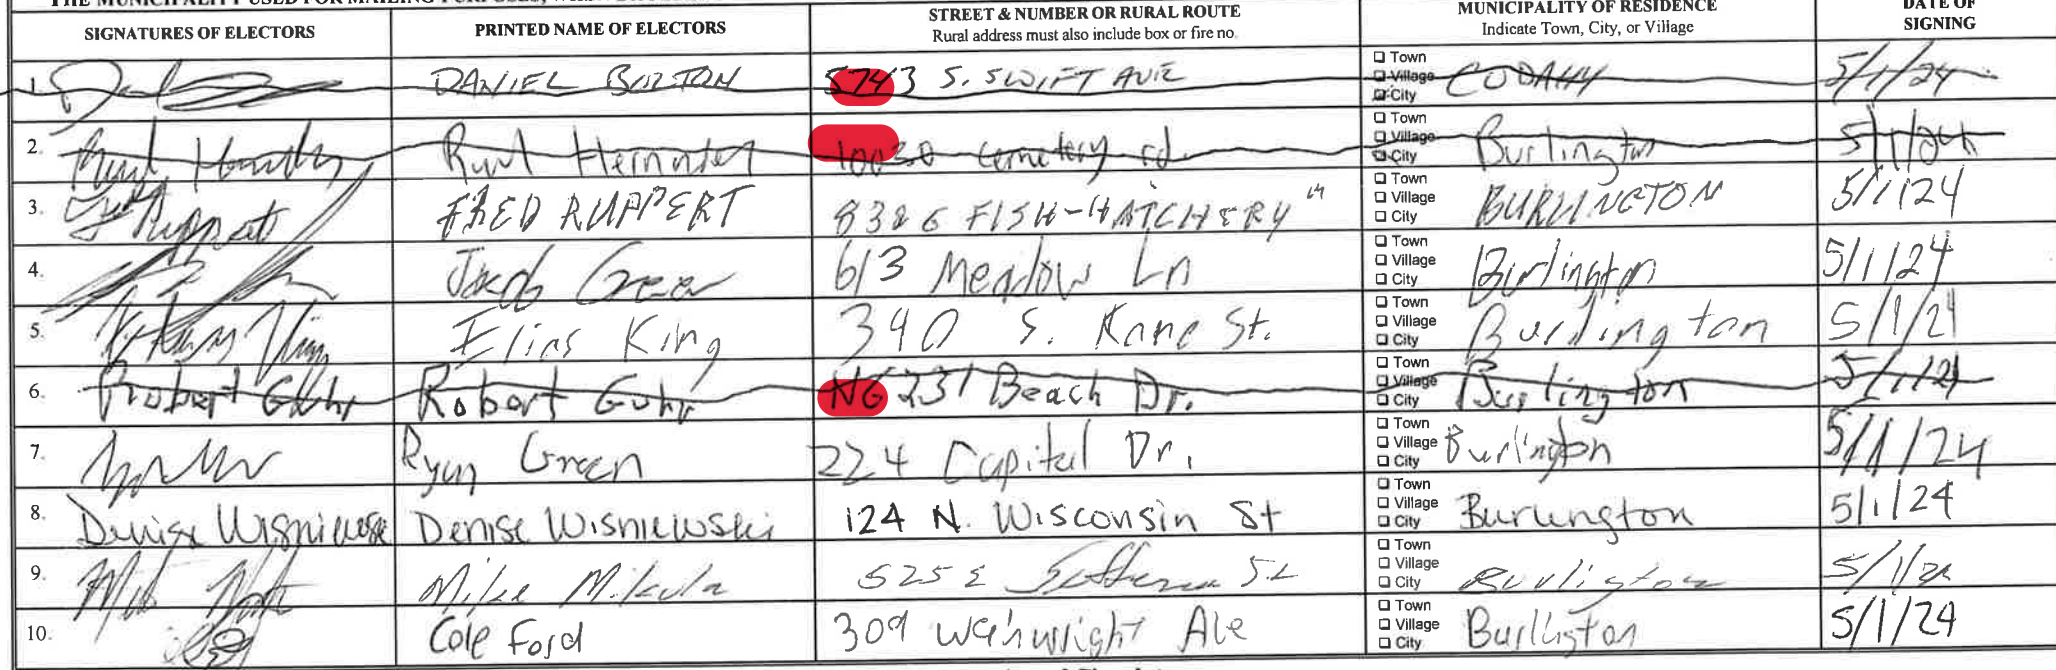 THE MUNICIPALITY USED FOR MAILING PURPOSES,
SIGNATURES OF ELECTORS PRINTED NAME OF ELECTORS STREET & NUMBER OR RURAL ROUTE
Rural address must also include box or fire no. MUNICIPALITY OF RESIDENCE
Indicate Town, City, or Village DATE OF
SIGNING
1. DANIEL BURTON 5743 S. SWIFT AVE Town
Village
City CUDAHY 5/1/24
2. Hernandez Cemetery rd. Town
Village
City Burlington 5/1/24
3. F Ruppert FRED RUPPERT 8326 FISH-HATCHERY Town
Village
City BURLINGTON 5/1/24
4. Jacob Green 613 Meadow Ln Town
Village
City Burlington 5/1/24
5. King Elias King 340 S. Kane St. Town
Village
City Burlington 5/1/24
6. Robert Guhr Robert Guhr N6231 Beach Dr. Town
Village
City Burlington 5/1/24
7. Ryan Green 224 Capital Dr. Town
Village
City Burlington 5/1/24
8. Denise Wisniewski Denise Wisniewski 124 N. Wisconsin St Town
Village
City Burlington 5/1/24
9. Mike Mikula 525 E St Town
Village
City Burlington 5/1/24
10. Cole Ford 309 Wainwright Ave Town
Village
City Burlington 5/1/24